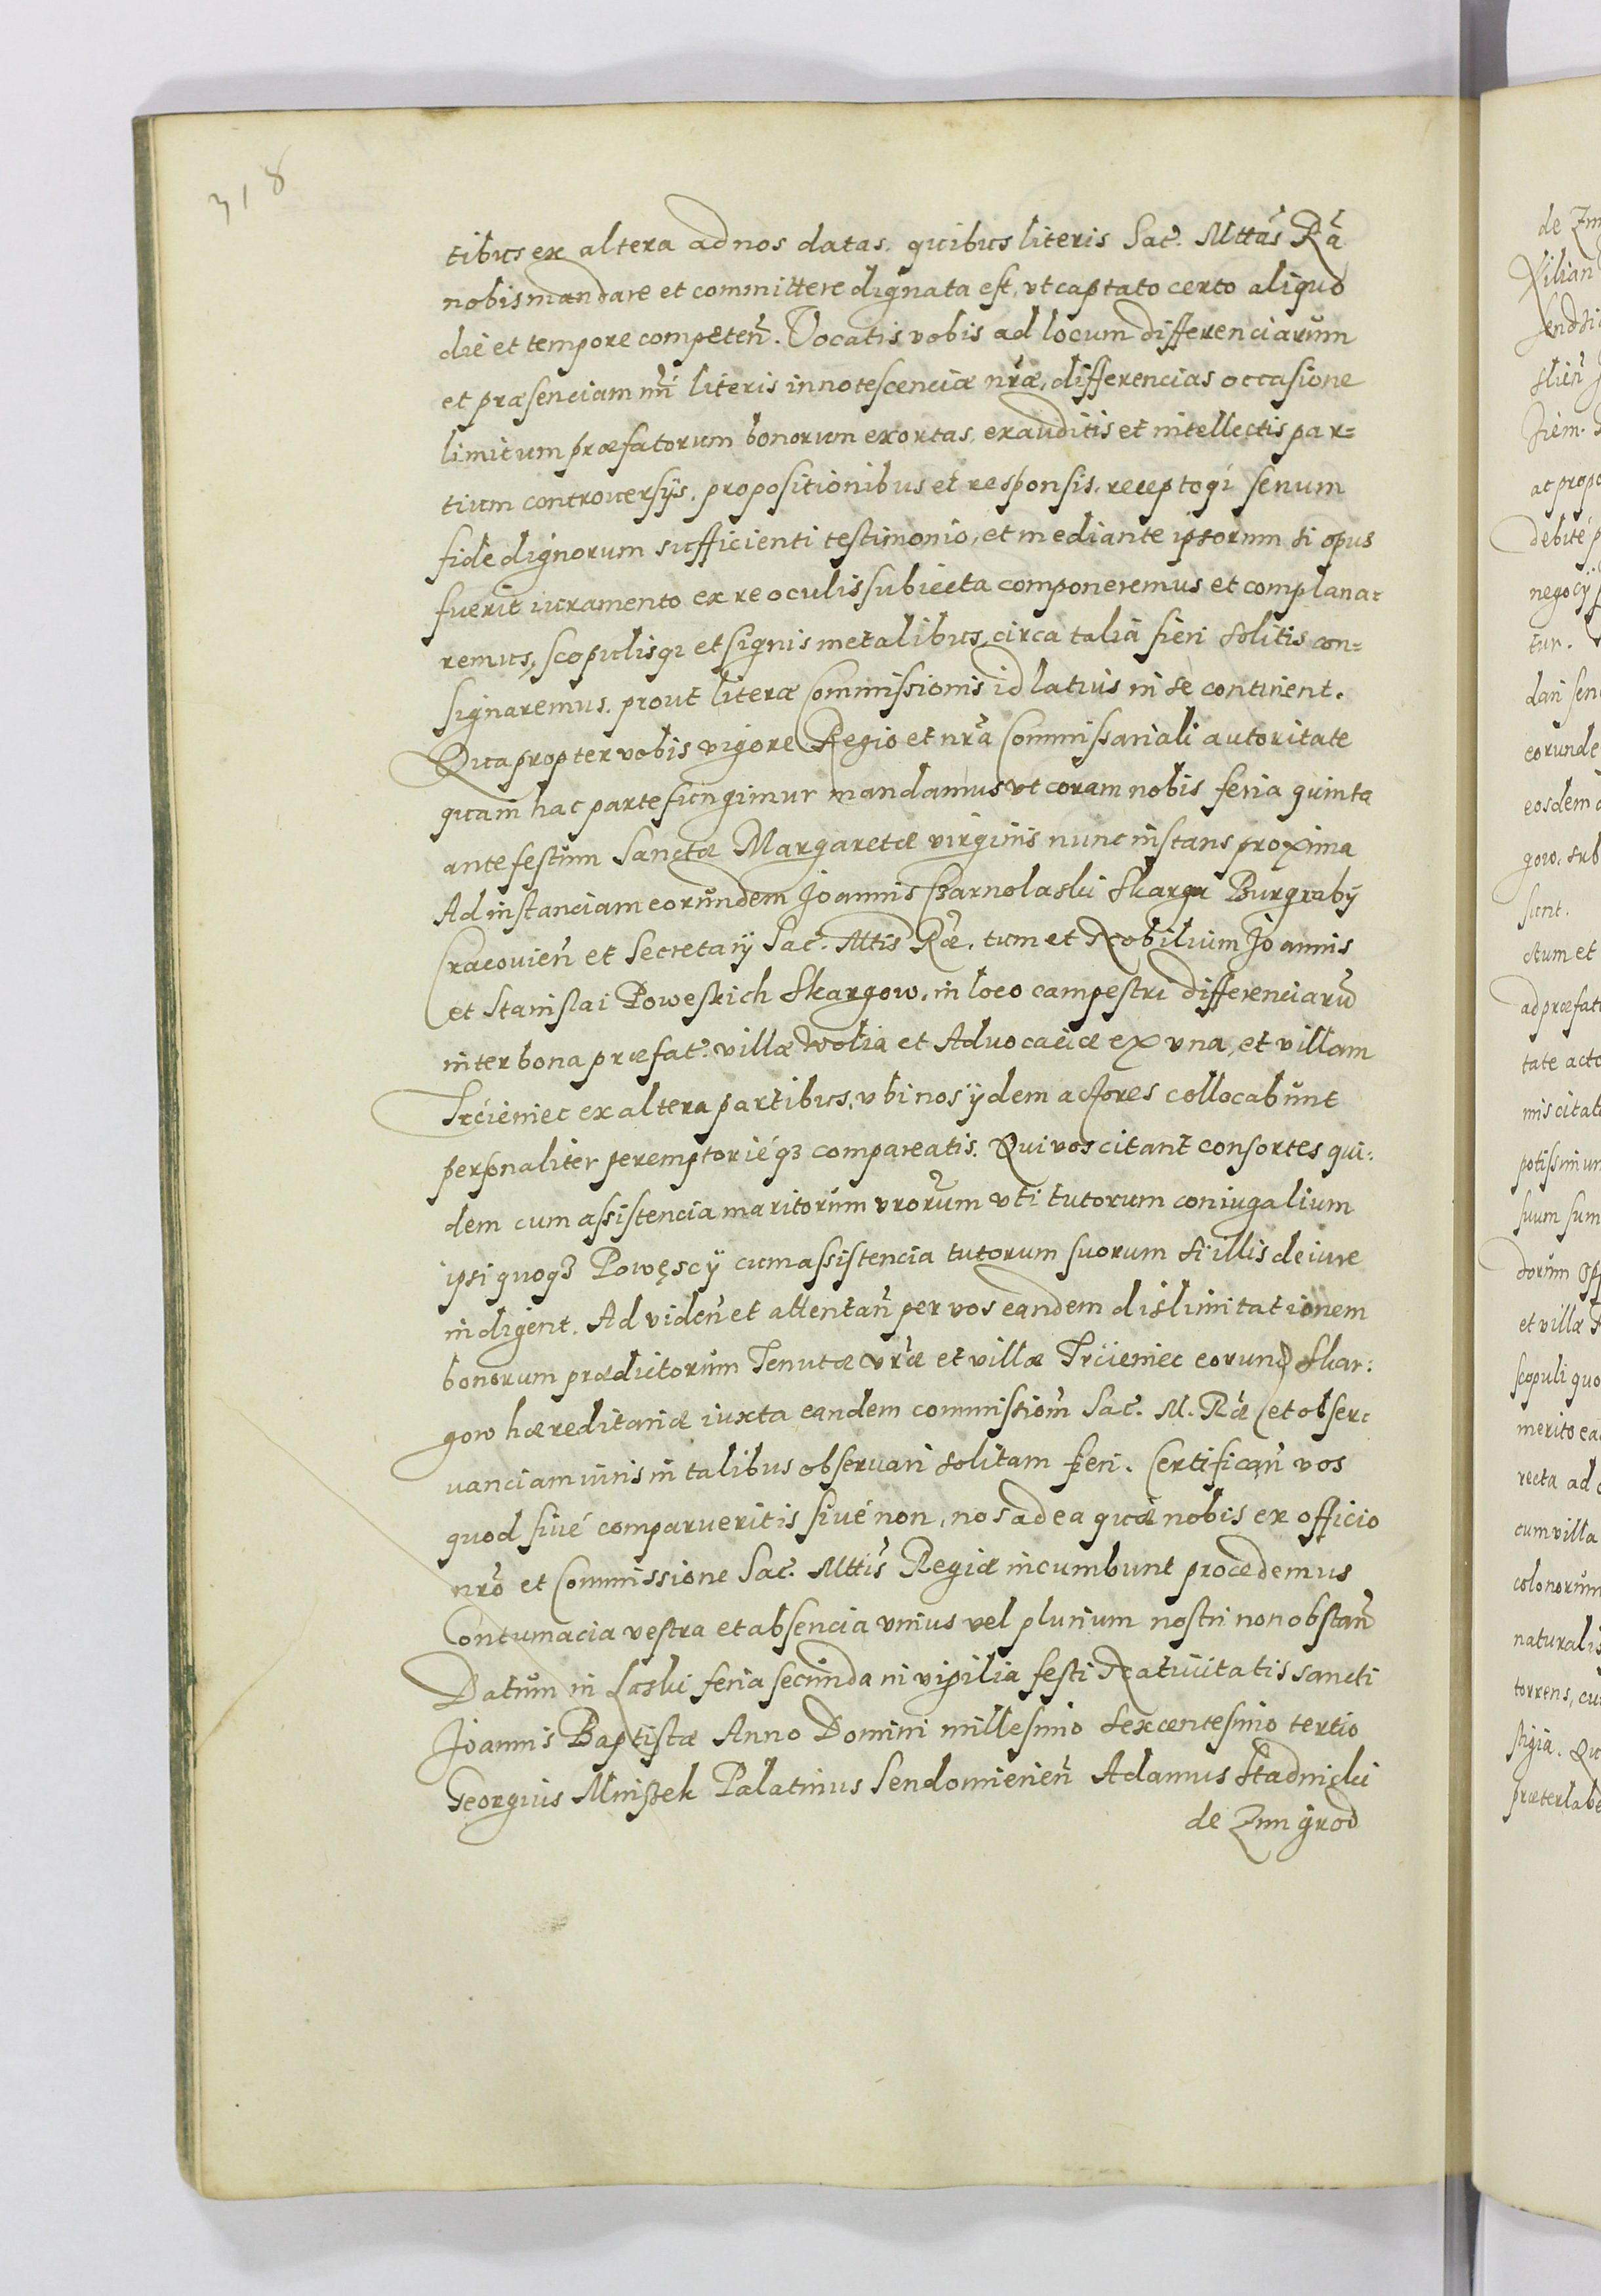 318
tibus ex altera ad nos datas. quibus literis Sac. Mttas Ra
nobis mandare et committere dignata est, vt captato certo aliquo
die et tempore competen̄. Vocatis vobis ad locum differenciarum
et præsenciam literis innotescenciæ nr̄æ, differencias occasione
limitum præfatorum bonorum exortas, exauditis et intellectis par=
tium controuersijs, propositionibus et responsis, receptoq́ senum
fide dignorum sufficienti testimonio, et mediante ipsorum si opus
fuerit iuramento ex re oculis subiecta componeremus et complana=
remus, scopulisq́ et signis metalibus, circa talia fieri solitis con=
signaremus. prout literæ Commissionis id latius in se continent.
Quapropter vobis vigore Regio et nr̄a Commissariali autoritate
qua in hac parte fungimur mandamus vt coram nobis feria quinta
ante festum Sanctæ Margaretæ virginis nunc instans proxima
Ad instanciam eorundem Joannis Czarnolaski Skarga Burgrabij
Cracouien̄ et Secretarij Sac. Mttis Ræ, tum et Nobilium Joannis
et Stanislai Poweskich Skargow, in loco campestri differenciarū
inter bona præfat. villæ Wolia et Aduocaciæ ex vna, et villam
Trcieniec ex altera partibus, vbi nos ijdem actores collocabunt
personaliter peremptorieq3 compareatis. Qui vos citant consortes qui=
dem cum assistencia maritorum vrorum vti tutorum coniugalium
ipsi quoq3 Powęscy cum assistencia tutorum suorum si illis de iure
indigent. Ad viden̄ et attentan̄ per vos eandem dislimitationem
bonorum prædictorum Tenutæ vr̄æ et villæ Trcieniec eorund Skar=
gow hæreditariæ iuxta eandem commissiom̄ Sac. M. Ræ et obser=
uanciam iuris in talibus obseruari solitam fieri. Certifican̄ vos
quod siué comparueritis siué non, nos ad ea quæ nobis ex officio
nr̄o et Commissione Sac. Mttis Regiæ incumbunt procedemus
Contumacia vestra et absencia vnius vel plurium nostri non obstan̄
Datum in Laski feria secunda in vigilia festi Natiuitatis sancti
Joannis Baptistæ Anno Domini millesimo sexcentesimo tertio
Georgius Mniszek Palatinus Sendomirien̄ Adamus Stadnicki
de Zmigrod